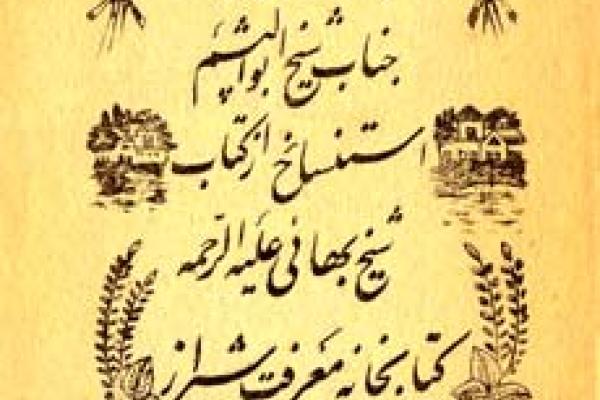 جناب شیخ ابوالپشم
استنساخ از کتاب
شیخ بهائی علیه الرحمه
کتابخانه معرفت شیراز